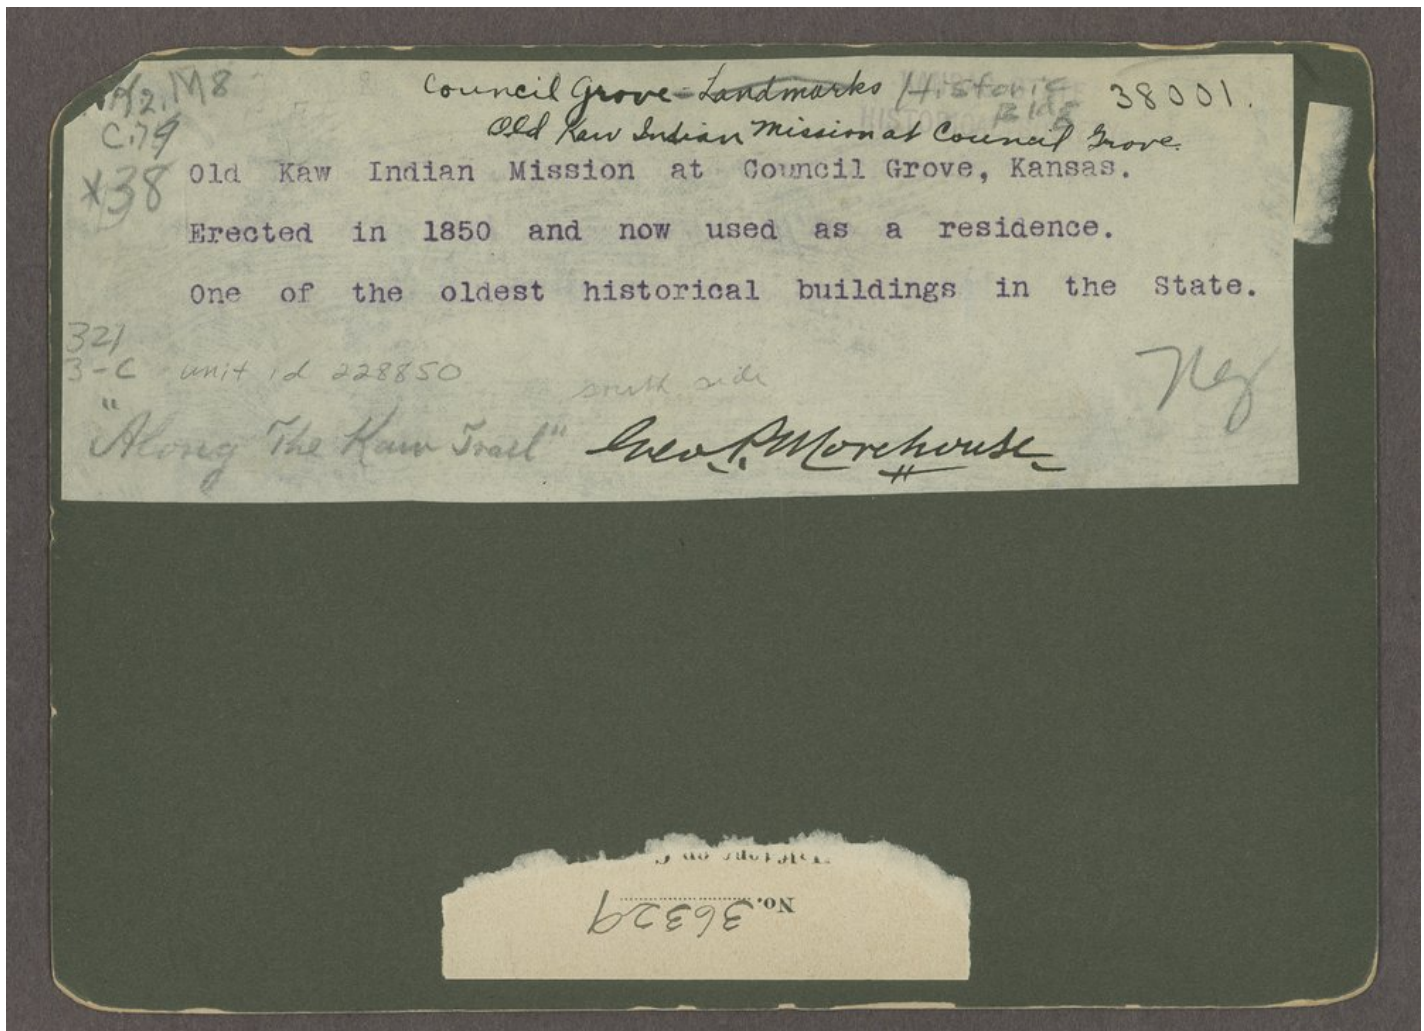 M8
C.79
*38
Council Grove - Landmarks Historic Bldg 38001.
Old Kaw Indian Mission at Council Grove.
Old Kaw Indian Mission at Council Grove, Kansas.
Erected in 1850 and now used as a residence.
One of the oldest historical buildings in the State.
321
3-C unit id 228850
south side
Neg
"Along The Kaw Trail" Geo. P. Morehouse
No. 36329